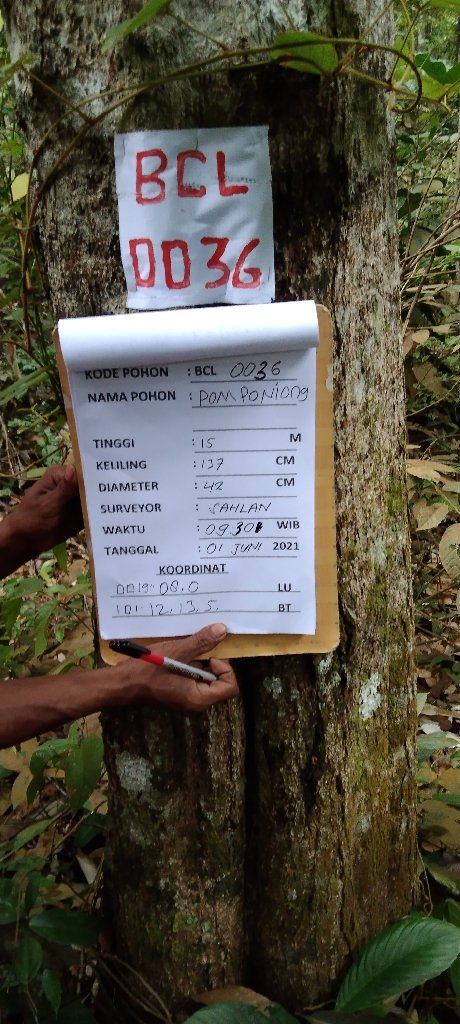 BCL
0036
KODE POHON : BCL 0036
NAMA POHON : POMPONIONG
TINGGI : 15 M
KELILING : 137 CM
DIAMETER : 42 CM
SURVEYOR : SAHLAN
WAKTU : 09.30 WIB
TANGGAL : 01 JUNI 2021
KOORDINAT
0019-08.0 LU
101-12.13.5. BT